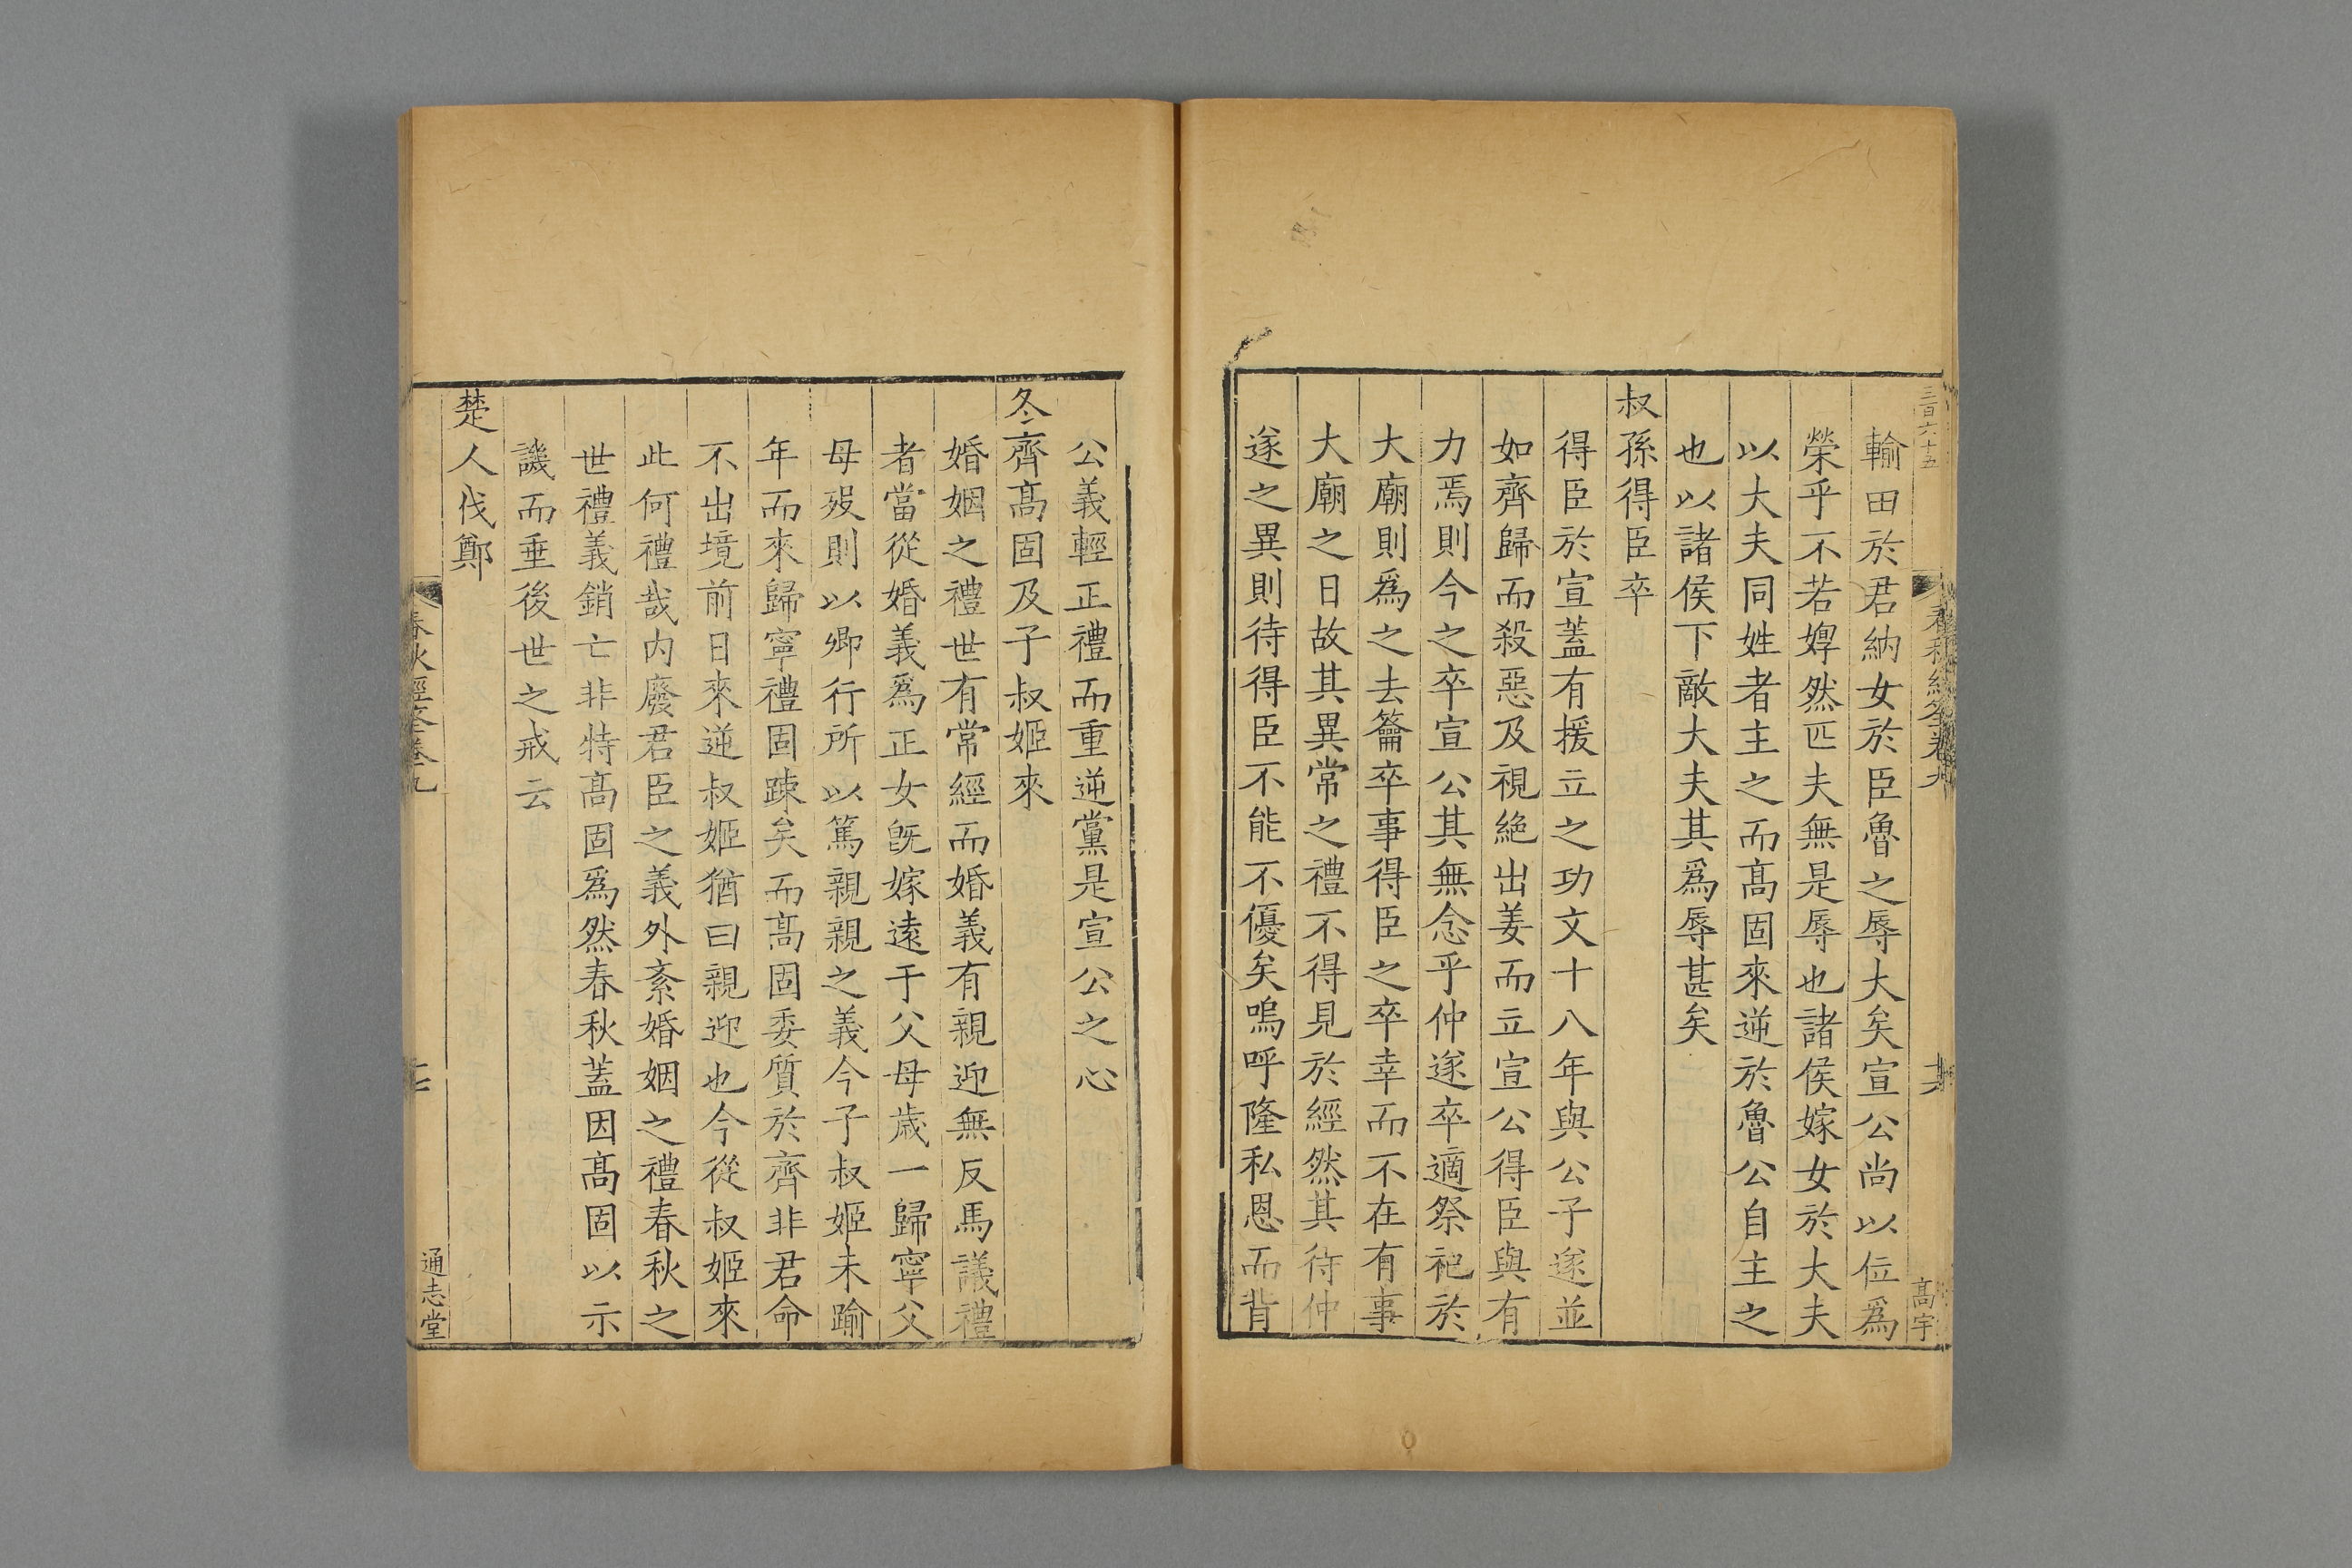 三百六十五
春秋經筌卷九
髙宇
輸田於君納女於臣魯之辱大矣宣公尚以位爲
榮乎不若婢然匹夫無是辱也諸侯嫁女於大夫
以大夫同姓者主之而髙固來逆於魯公自主之
也以諸侯下敵大夫其爲辱甚矣
叔孫得臣卒
得臣於宣蓋有援立之功文十八年與公子遂並
如齊歸而殺惡及視絶出姜而立宣公得臣與有
力焉則今之卒宣公其無念乎仲遂卒適祭祀於
大廟則爲之去籥卒事得臣之卒幸而不在有事
大廟之日故其異常之禮不得見於經然其待仲
遂之異則待得臣不能不優矣嗚呼隆私恩而背
公義輕正禮而重逆黨是宣公之心
冬齊髙固及子叔姬來
婚姻之禮世有常經而婚義有親迎無反馬議禮
者當從婚義爲正女旣嫁遠于父母歲一歸寧父
母歿則以卿行所以篤親親之義今子叔姬未踰
年而來歸寧禮固踈矣而髙固委質於齊非君命
不出境前日來逆叔姬猶曰親迎也今從叔姬來
此何禮哉内廢君臣之義外紊婚姻之禮春秋之
世禮義銷亡非特髙固爲然春秋蓋因髙固以示
譏而垂後世之戒云
楚人伐鄭
春秋經筌卷九
通志堂